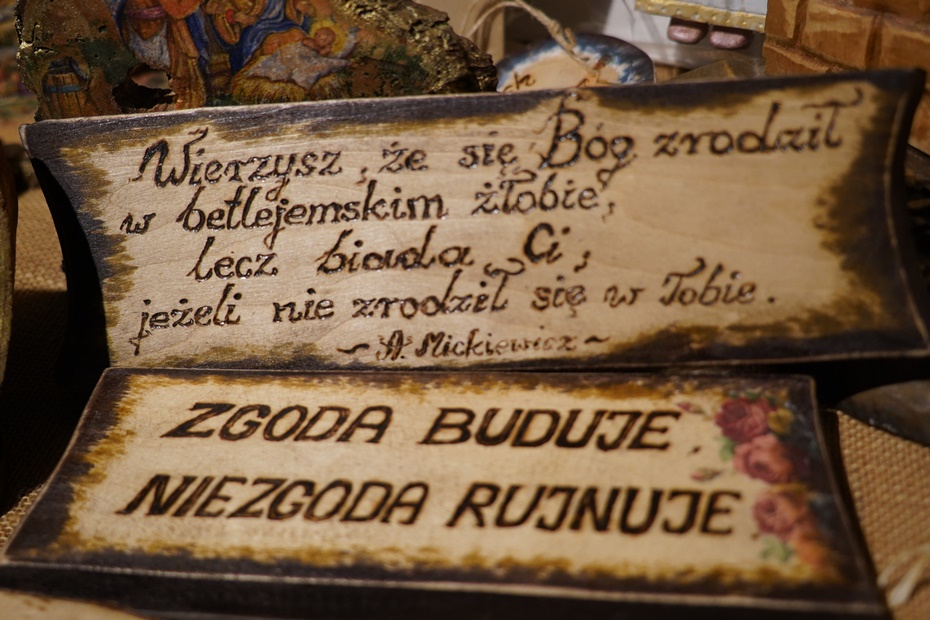 Wierzysz, że się Bóg zrodził
w betlejemskim żłobie,
lecz biada Ci,
jeżeli nie zrodził się w Tobie.
~ A. Mickiewicz ~
ZGODA BUDUJE,
NIEZGODA RUJNUJE